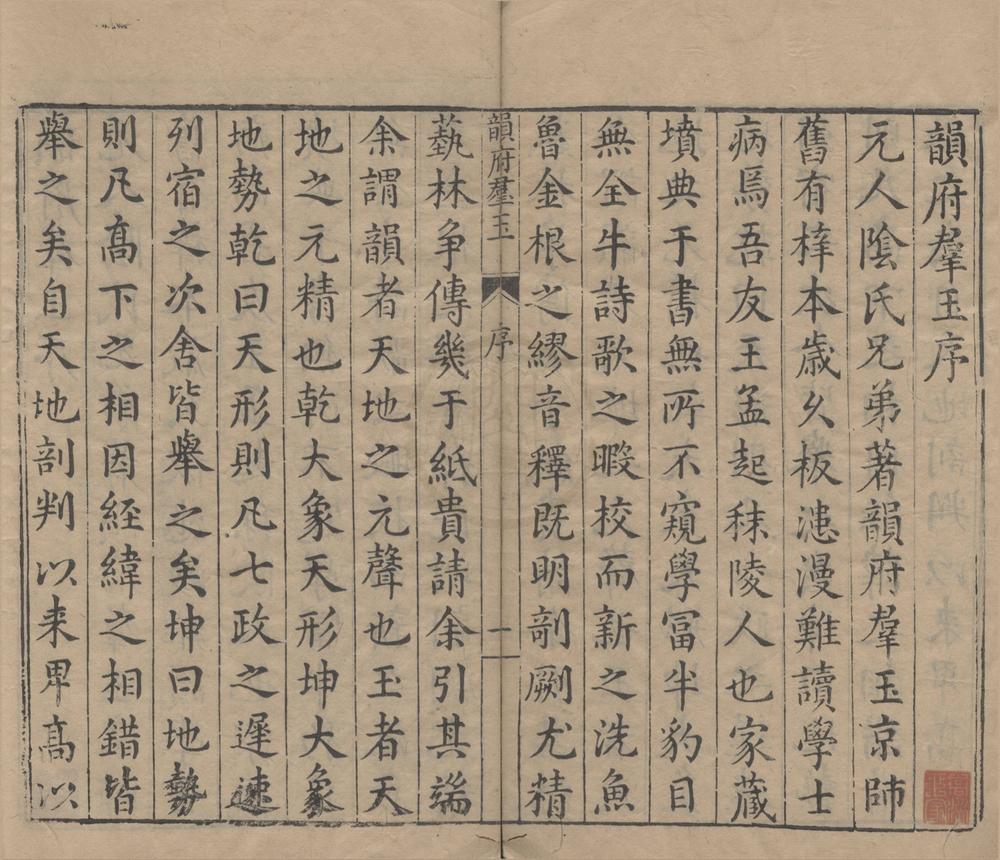 韻府羣玉序
元人陰氏兄弟著韻府羣玉京師
舊有梓本歲乆板漶漫難讀學士
病焉吾友王孟起秣陵人也家蔵
墳典于書無所不窺學冨半豹目
無全牛詩歌之暇校而新之洗魚
魯金根之繆音釋既明剞劂尤精
韻府羣玉 序 一
藝林争傳幾于紙貴請余引其端
余謂韻者天地之元聲也玉者天
地之元精也乾大象天形坤大象
地勢乾曰天形則凡七政之遲速
列宿之次舍皆舉之矣坤曰地勢
則凡髙下之相因経緯之相錯皆
舉之矣自天地剖判以来卑髙以